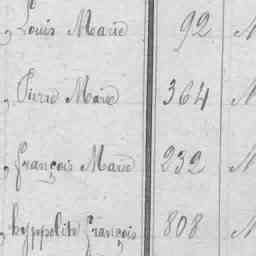 , Louis Marie 92 N
, Pierre Marie 364 N
, François Marie 232 N
, hyppolite François 808 N